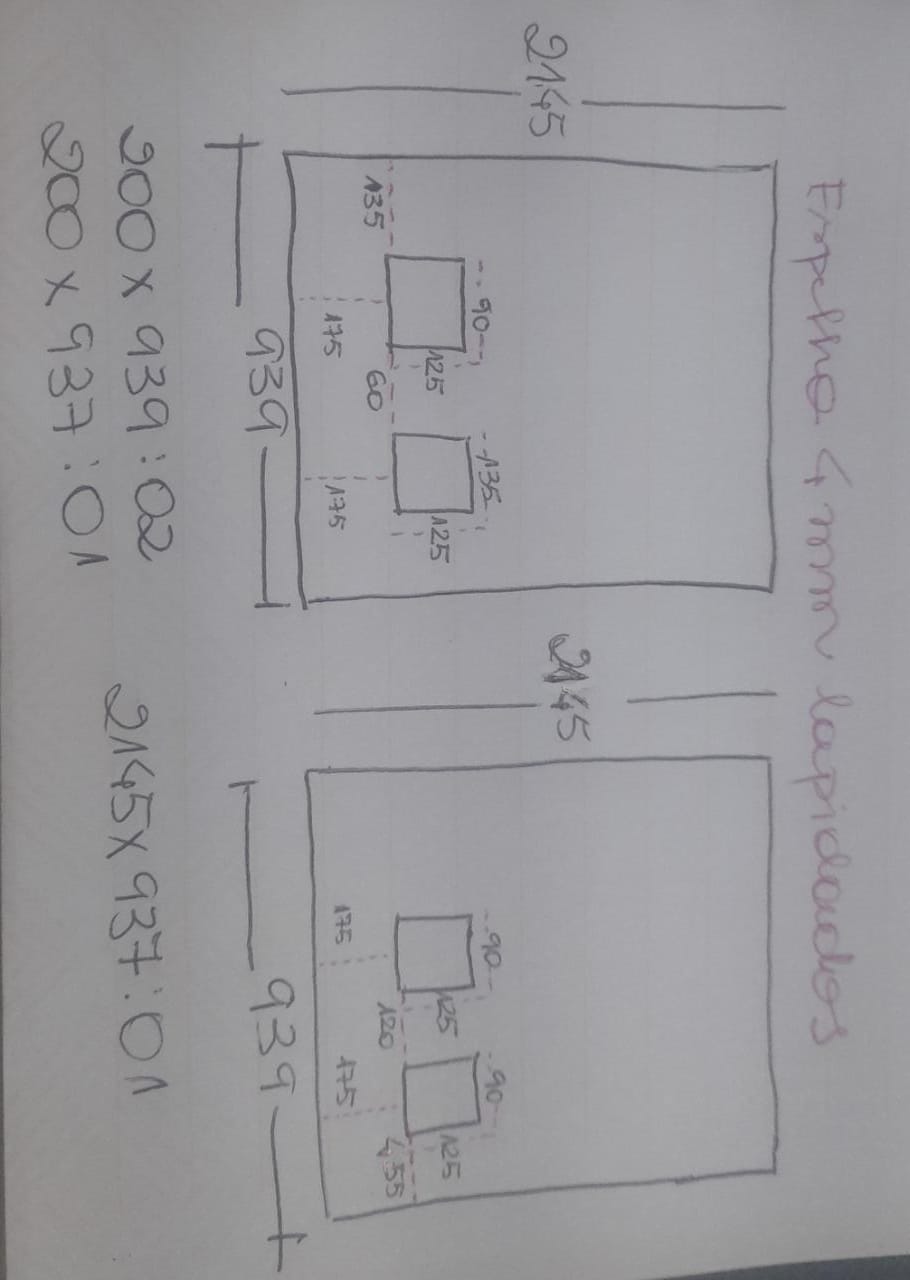 Espelho 4 mm lapidados
2145
90
125
135
125
135
60
175
175
939
2145
90
125
90
125
120
455
175
175
939
200 x 939 : 02
200 x 937 : 01
2145 x 937 : 01